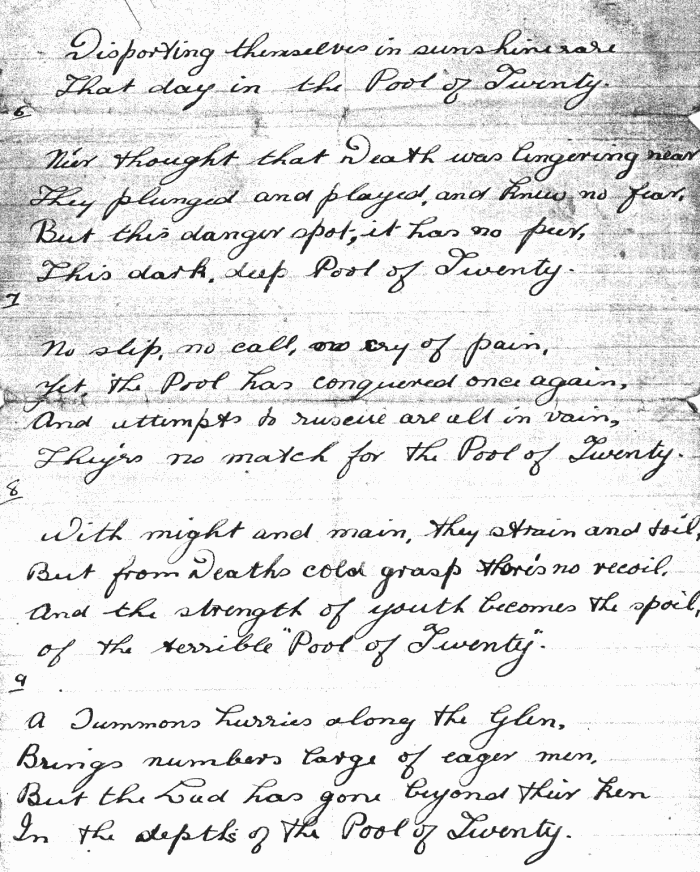 Disporting themselves in sunshine rare
That day in the Pool of Twenty.
6
Ne'er thought that Death was lingering near
They plunged and played, and knew no fear,
But this danger spot, it has no peer,
This dark, deep Pool of Twenty.
7
No slip, no call, no cry of pain,
Yet, the Pool has conquered once again,
And attempts to rescue are all in vain,
They'rs no match for the Pool of Twenty.
8
With might and main, they strain and toil,
But from Deaths cold grasp there's no recoil,
And the strength of youth becomes the spoil,
of the terrible "Pool of Twenty".
9
A Summons hurries along the Glen,
Brings numbers large of eager men,
But the Lad has gone beyond their ken
In the depths of the Pool of Twenty.